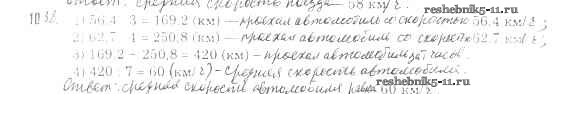 Ответ: средняя скорость поезда 68 км/г.
www.reshak.ru
1032. 1) 56,4 · 3 = 169,2 (км) — проехал автомобиль со скоростью 56,4 км/г;
2) 62,7 · 4 = 250,8 (км) — проехал автомобиль со скоростью 62,7 км/г;
3) 169,2 + 250,8 = 420 (км) — проехал автомобиль за 7 часов.
4) 420 : 7 = 60 (км/г) - средняя скорость автомобиля.
Ответ: средняя скорость автомобиля равна 60 км/г.
www.reshak.ru